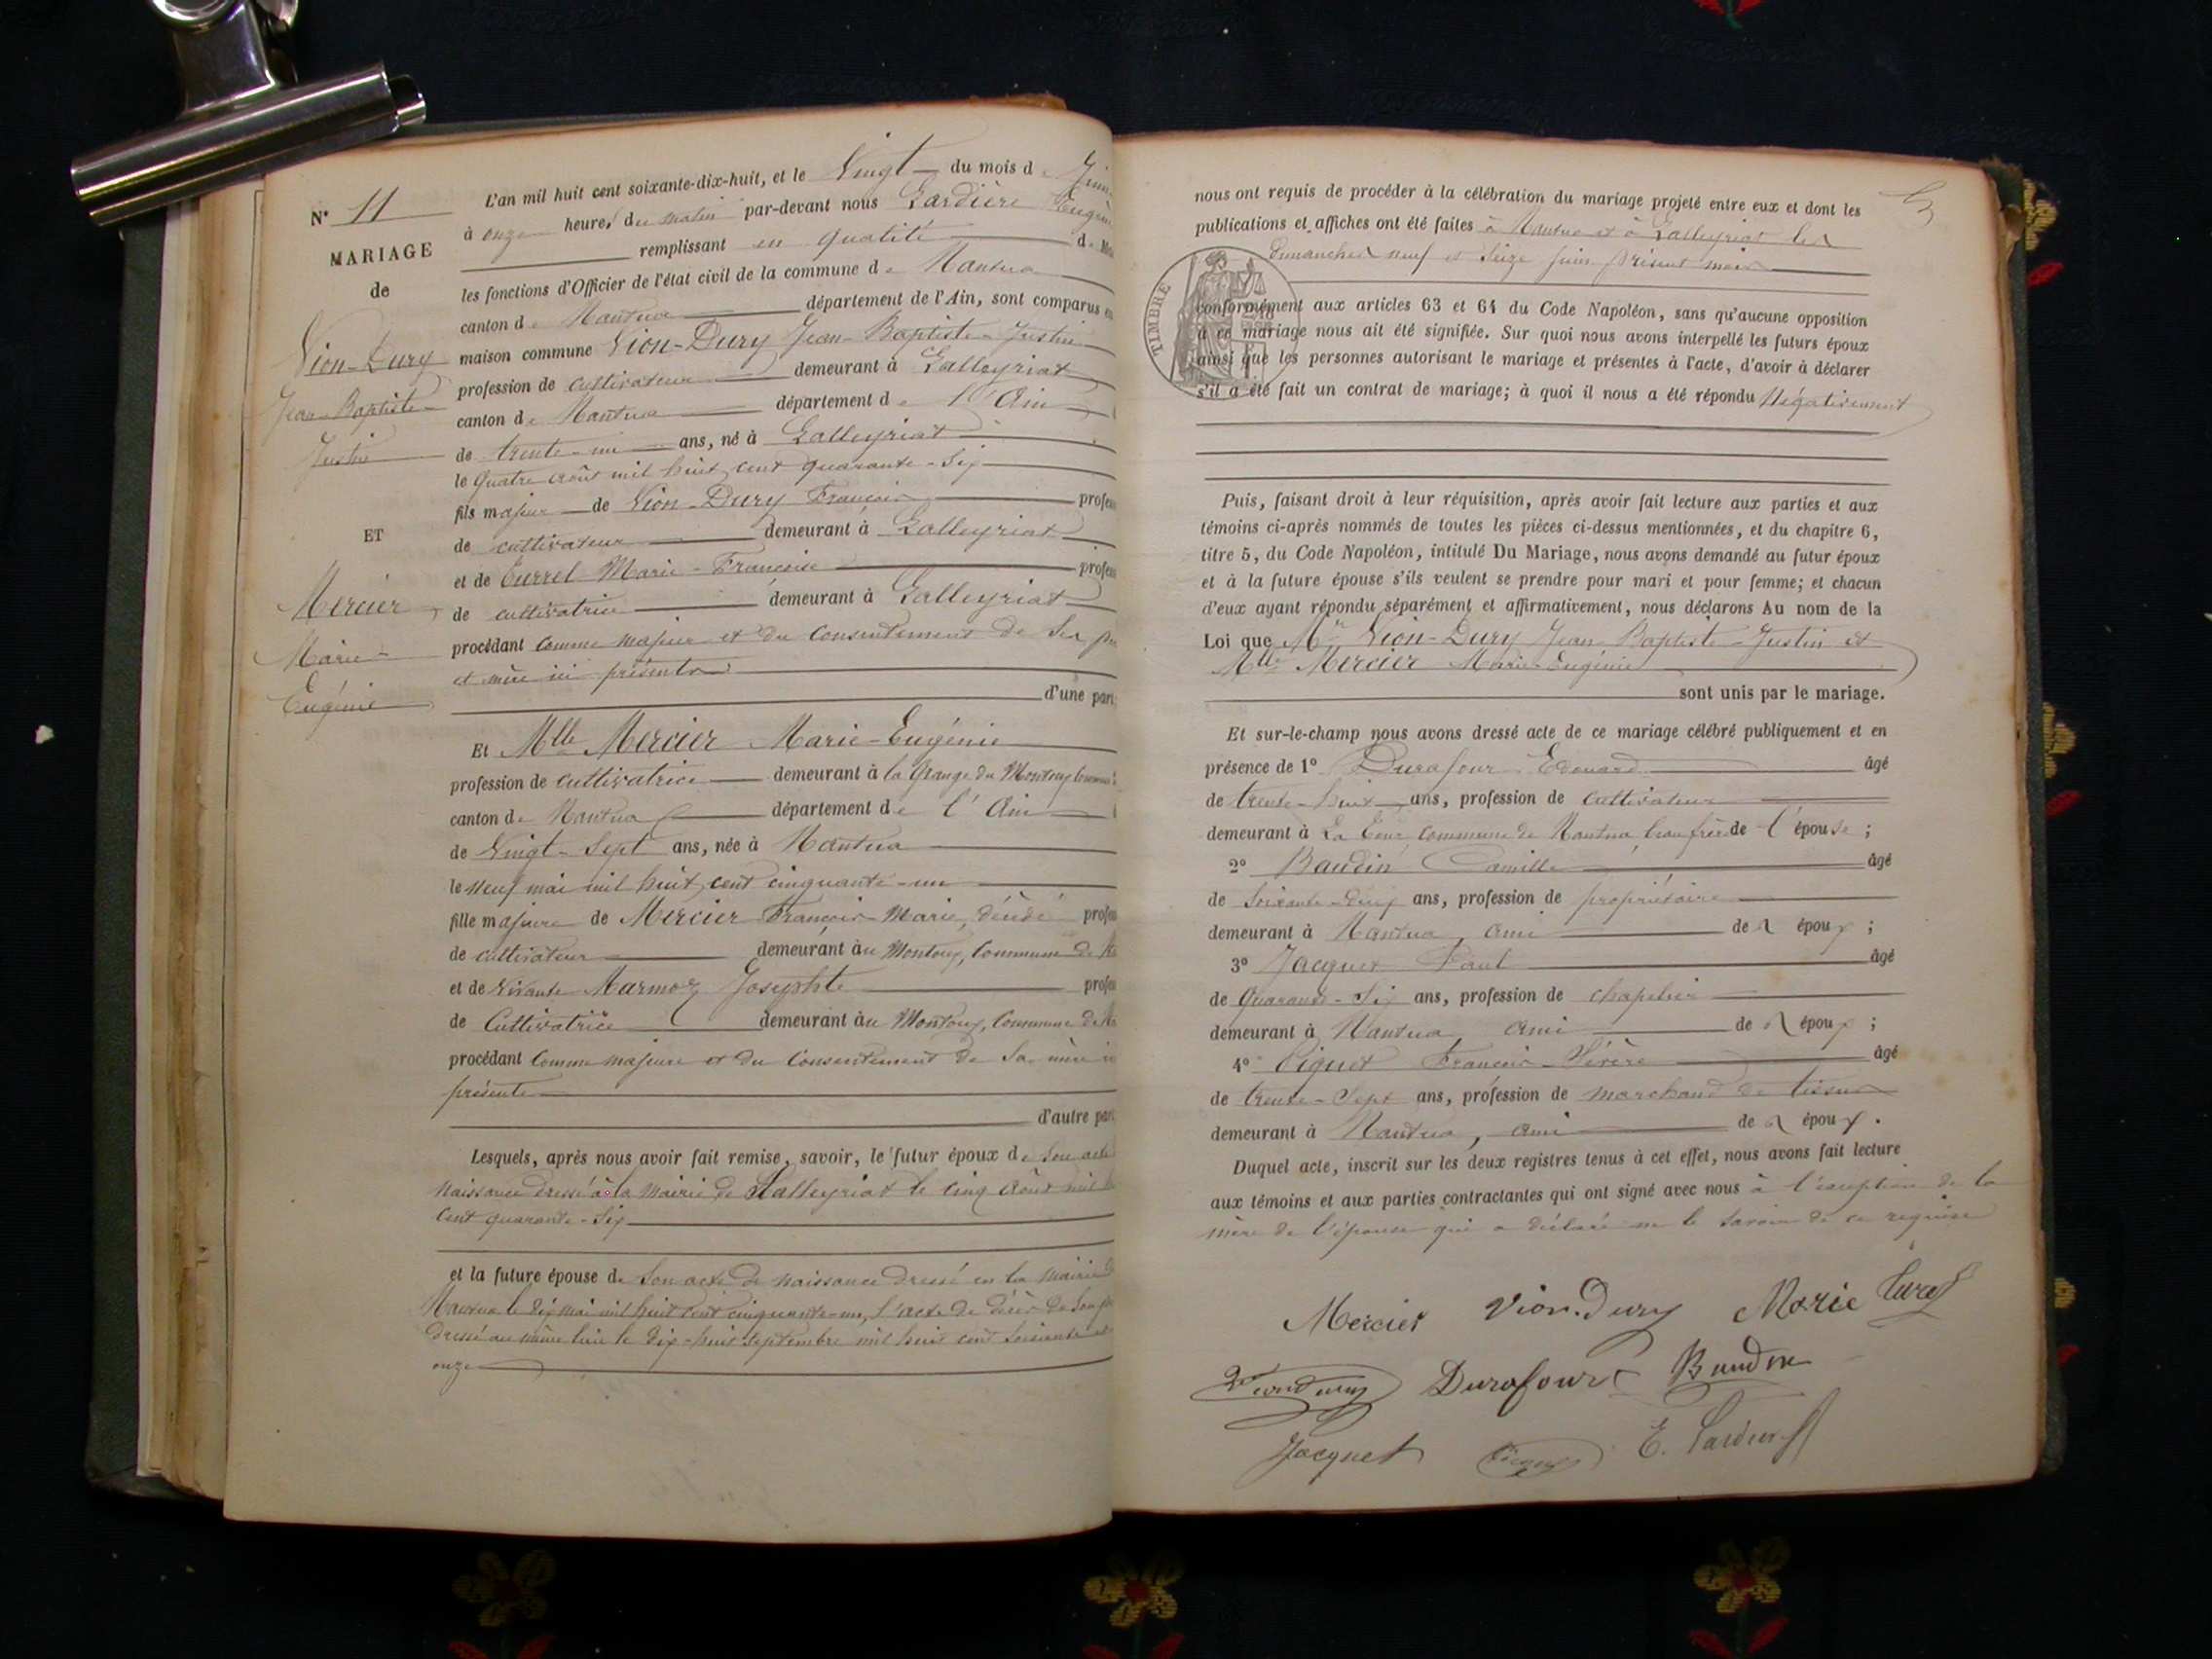 N° 11
MARIAGE
de
Vion-Dury
Jean-Baptiste-
Justin
ET
Mercier
Marie-
Eugénie
L'an mil huit cent soixante-dix-huit, et le Vingt du mois de Juin
à onze heures du matin par-devant nous Lardière Eugène
remplissant en qualité de
les fonctions d'Officier de l'état civil de la commune de Nantua
canton de Nantua département de l'Ain, sont comparus en
maison commune Vion-Dury Jean-Baptiste-Justin
profession de cultivateur demeurant à Lalleyriat
canton de Nantua département de l'Ain
de trente-un ans, né à Lalleyriat
le quatre août mil huit cent quarante-six
fils majeur de Vion-Dury François profes
de cultivateur demeurant à Lalleyriat
et de Turrel Marie-Françoise profes
de cultivatrice demeurant à Lalleyriat
procédant comme majeur et du consentement de ses
et mère ici présents
d'une part
Et Mlle Mercier Marie-Eugénie
profession de cultivatrice demeurant à la Grange du
canton de Nantua département de l'Ain
de Vingt-Sept ans, née à Nantua
le neuf mai mil huit cent cinquante-un
fille majeure de Mercier François-Marie, décédé profes
de cultivateur demeurant au Commune de
et de vivante Marmoz Josephte profes
de Cultivatrice demeurant au Commune de
procédant comme majeure et du consentement de sa mère
présente
d'autre part
Lesquels, après nous avoir fait remise, savoir, le futur époux de son acte
naissance dressé à la Mairie de Lalleyriat le cinq août mil
cent quarante-six
et la future épouse de son acte de naissance dressé en la mairie
Nantua le dix mai mil huit cent cinquante-un, l'acte de décès de son
dressé au même lieu le dix-huit septembre mil huit cent soixante et
onze
nous ont requis de procéder à la célébration du mariage projeté entre eux et dont les
publications et affiches ont été faites à Nantua et à Lalleyriat les
Dimanches neuf et seize juin présent mois
TIMBRE
conformément aux articles 63 et 64 du Code Napoléon, sans qu'aucune opposition
à ce mariage nous ait été signifiée. Sur quoi nous avons interpellé les futurs époux
ainsi que les personnes autorisant le mariage et présentes à l'acte, d'avoir à déclarer
s'il a été fait un contrat de mariage; à quoi il nous a été répondu Négativement
Puis, faisant droit à leur réquisition, après avoir fait lecture aux parties et aux
témoins ci-après nommés de toutes les pièces ci-dessus mentionnées, et du chapitre 6,
titre 5, du Code Napoléon, intitulé Du Mariage, nous avons demandé au futur époux
et à la future épouse s'ils veulent se prendre pour mari et pour femme; et chacun
d'eux ayant répondu séparément et affirmativement, nous déclarons Au nom de la
Loi que Mr Vion-Dury Jean-Baptiste-Justin et
Mlle Mercier Marie-Eugénie
sont unis par le mariage.
Et sur-le-champ nous avons dressé acte de ce mariage célébré publiquement et en
présence de 1° Durafour Edouard âgé
de trente-huit ans, profession de cultivateur
demeurant à commune de Nantua, beau frère de l'épouse ;
2° Baudin Camille âgé
de ans, profession de propriétaire
demeurant à Nantua, ami des époux ;
3° Jacquet Paul âgé
de Quarante-six ans, profession de chapelier
demeurant à Nantua, ami des époux ;
4° François-Sévère âgé
de trente-Sept ans, profession de marchand de tissus
demeurant à Nantua, ami des époux.
Duquel acte, inscrit sur les deux registres tenus à cet effet, nous avons fait lecture
aux témoins et aux parties contractantes qui ont signé avec nous à l'exception de la
mère de l'épouse qui a déclaré ne le savoir de ce requise
Mercier Vion-Dury Marie
Viondury Durafour Baudin
Jacquet E. Lardière